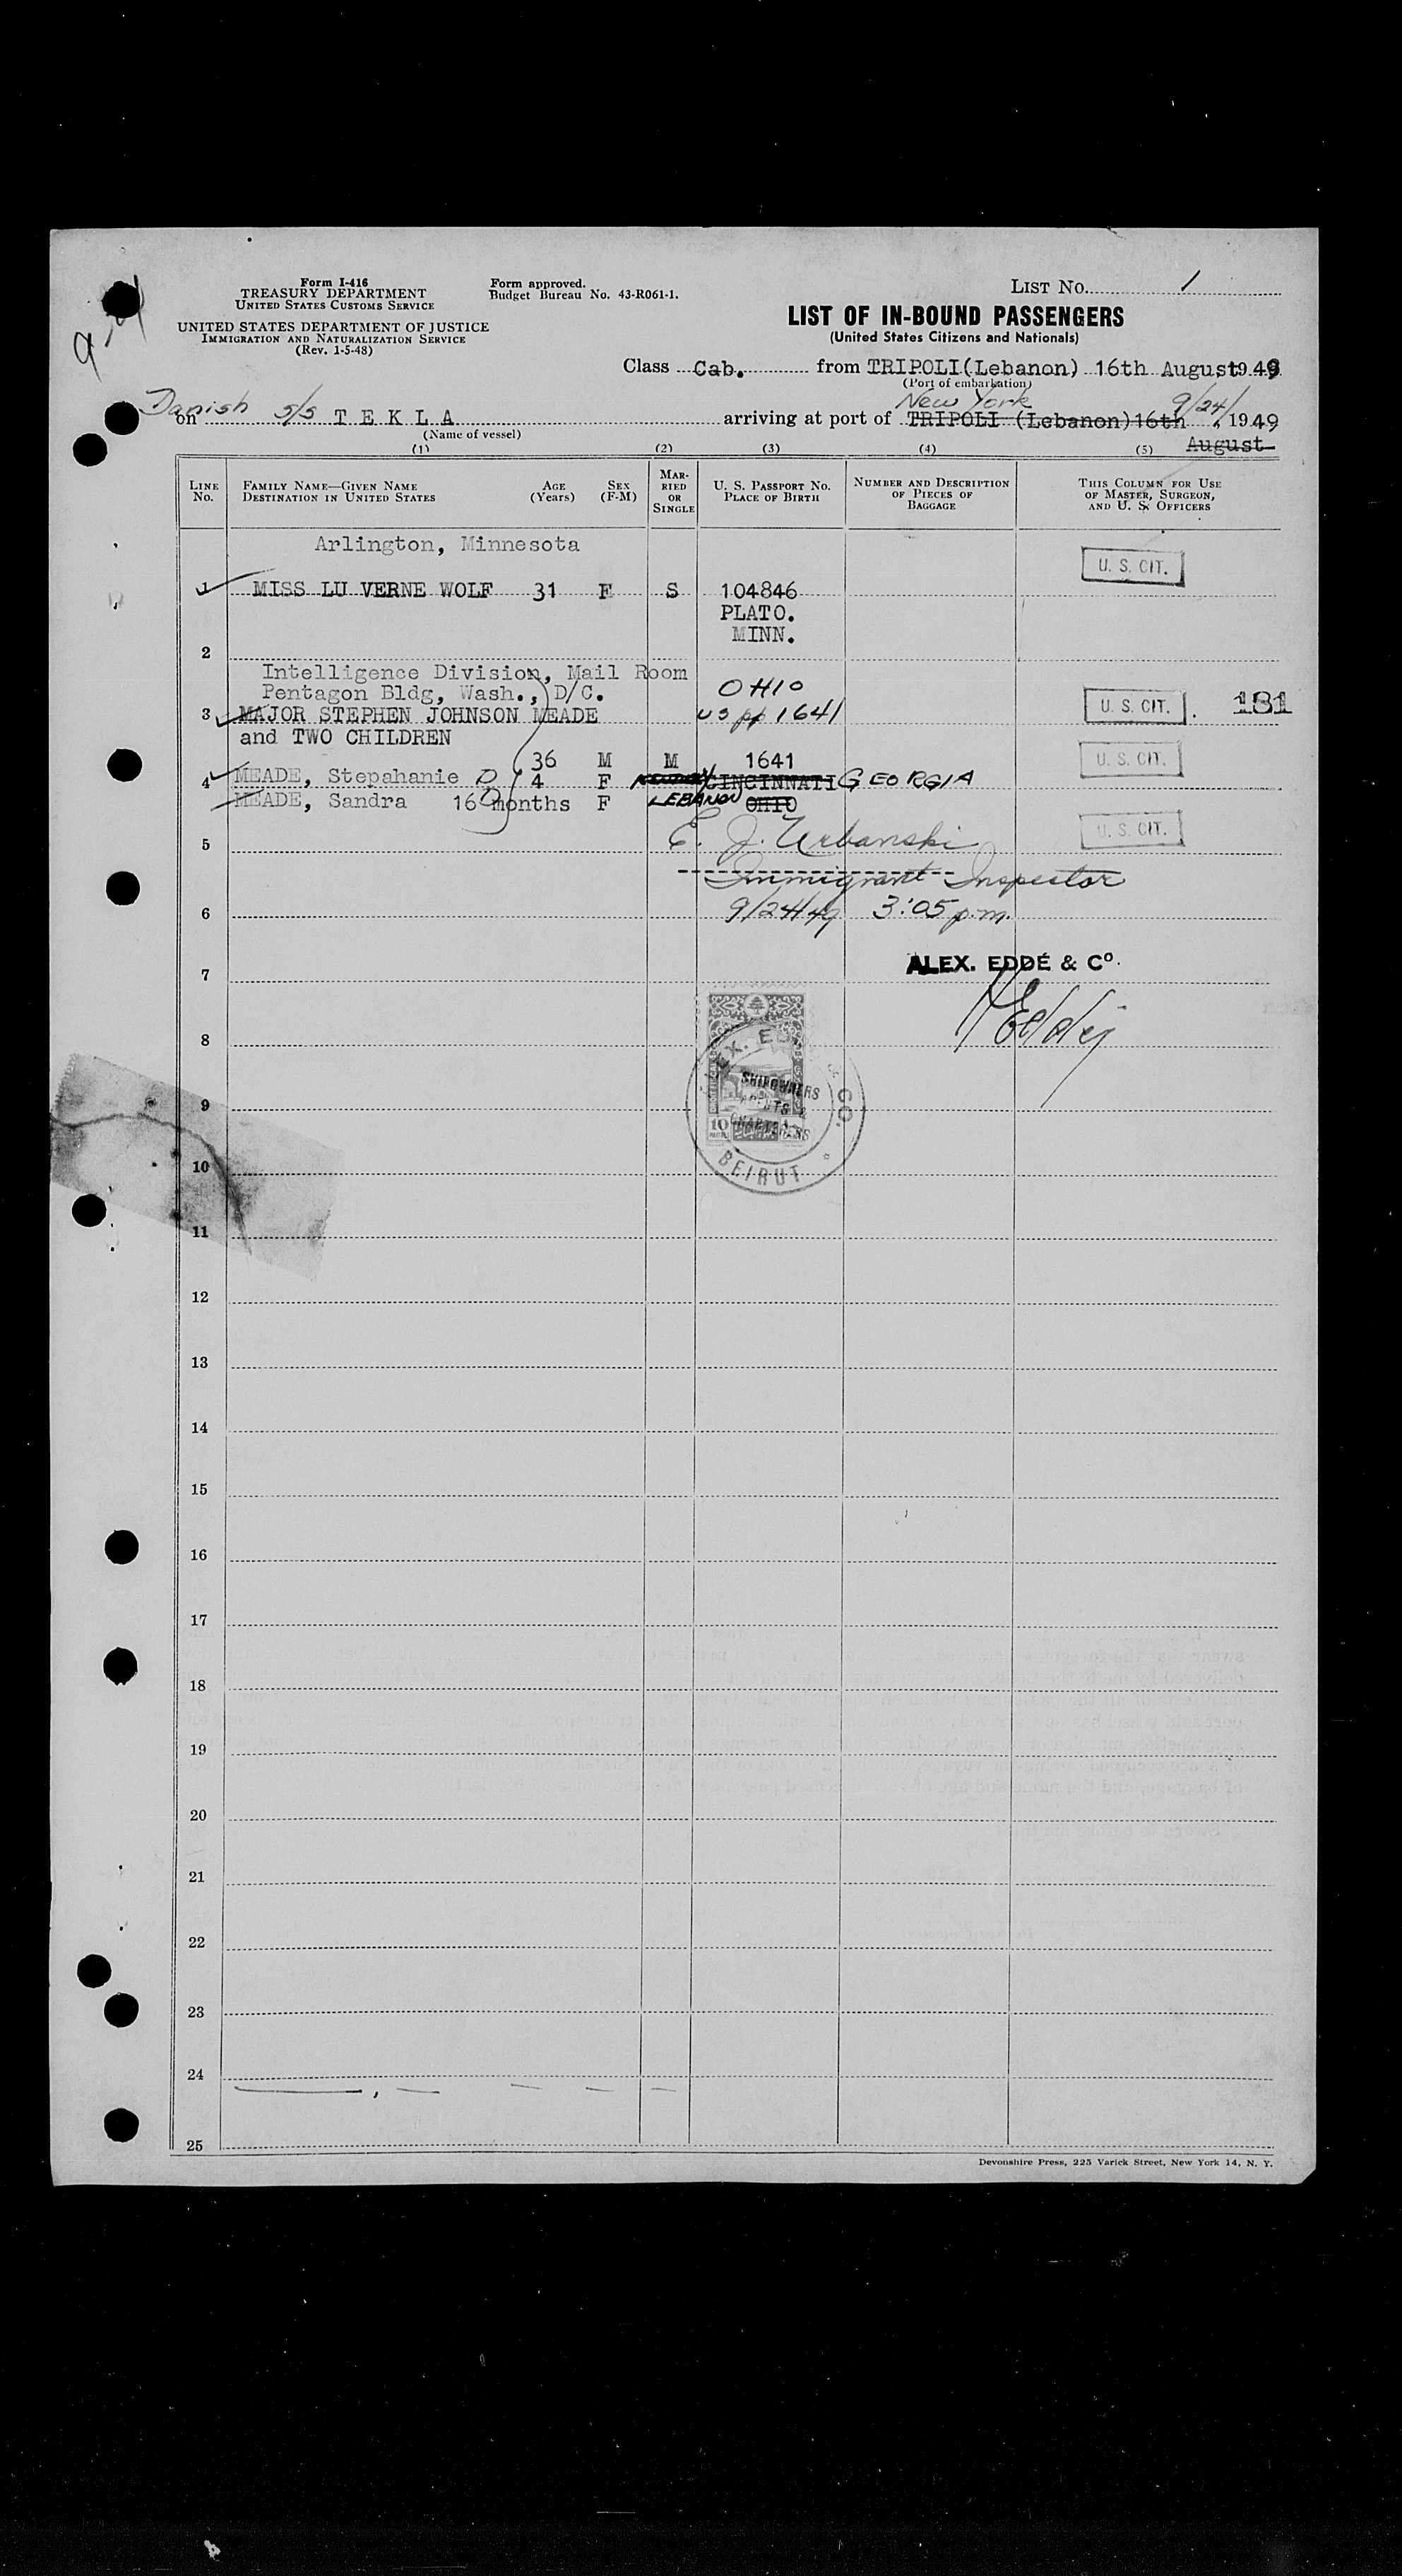 Form I-416
TREASURY DEPARTMENT
UNITED STATES CUSTOMS SERVICE
UNITED STATES DEPARTMENT OF JUSTICE
IMMIGRATION AND NATURALIZATION SERVICE
(Rev. 1-5-48)
Form approved.
Budget Bureau No. 43-R061-1.
LIST NO. 1
LIST OF IN-BOUND PASSENGERS
(United States Citizens and Nationals)
Class Cab. from TRIPOLI(Lebanon) 16th August, 1949
(Port of embarkation)
New York 9/24/
Danish s/s
on TEKLA arriving at port of TRIPOLI (Lebanon)16th, 1949
August
(Name of vessel)
(1) (2) (3) (4) (5)
LINE No.
FAMILY NAME—GIVEN NAME
DESTINATION IN UNITED STATES
AGE (Years)
SEX (F-M)
MARRIED OR SINGLE
U. S. PASSPORT NO.
PLACE OF BIRTH
NUMBER AND DESCRIPTION OF PIECES OF BAGGAGE
THIS COLUMN FOR USE OF MASTER, SURGEON, AND U. S. OFFICERS
Arlington, Minnesota
U. S. CIT.
1 MISS LU VERNE WOLF 31 F S 104846
PLATO.
MINN.
2
Intelligence Division, Mail Room
Pentagon Bldg, Wash., D/C.
OHIO
3 MAJOR STEPHEN JOHNSON MEADE us pp 1641 U. S. CIT. 181
and TWO CHILDREN
36 M M 1641 U. S. CIT.
4 MEADE, Stepahanie D 4 F CINCINNATI GEORGIA
MEADE, Sandra D 16 months F LEBANON OHIO
5 E. J. Urbanski U. S. CIT.
Immigrant Inspector
6 9/24/49 3:05 p.m.
ALEX. EDDÉ & Co.
7
8
ALEX. EDDE & CO.
SHIPOWNERS
AGENTS &
CHARTERERS
10
BEIRUT
9
10
11
12
13
14
15
16
17
18
19
20
21
22
23
24
25
Devonshire Press, 225 Varick Street, New York 14, N. Y.